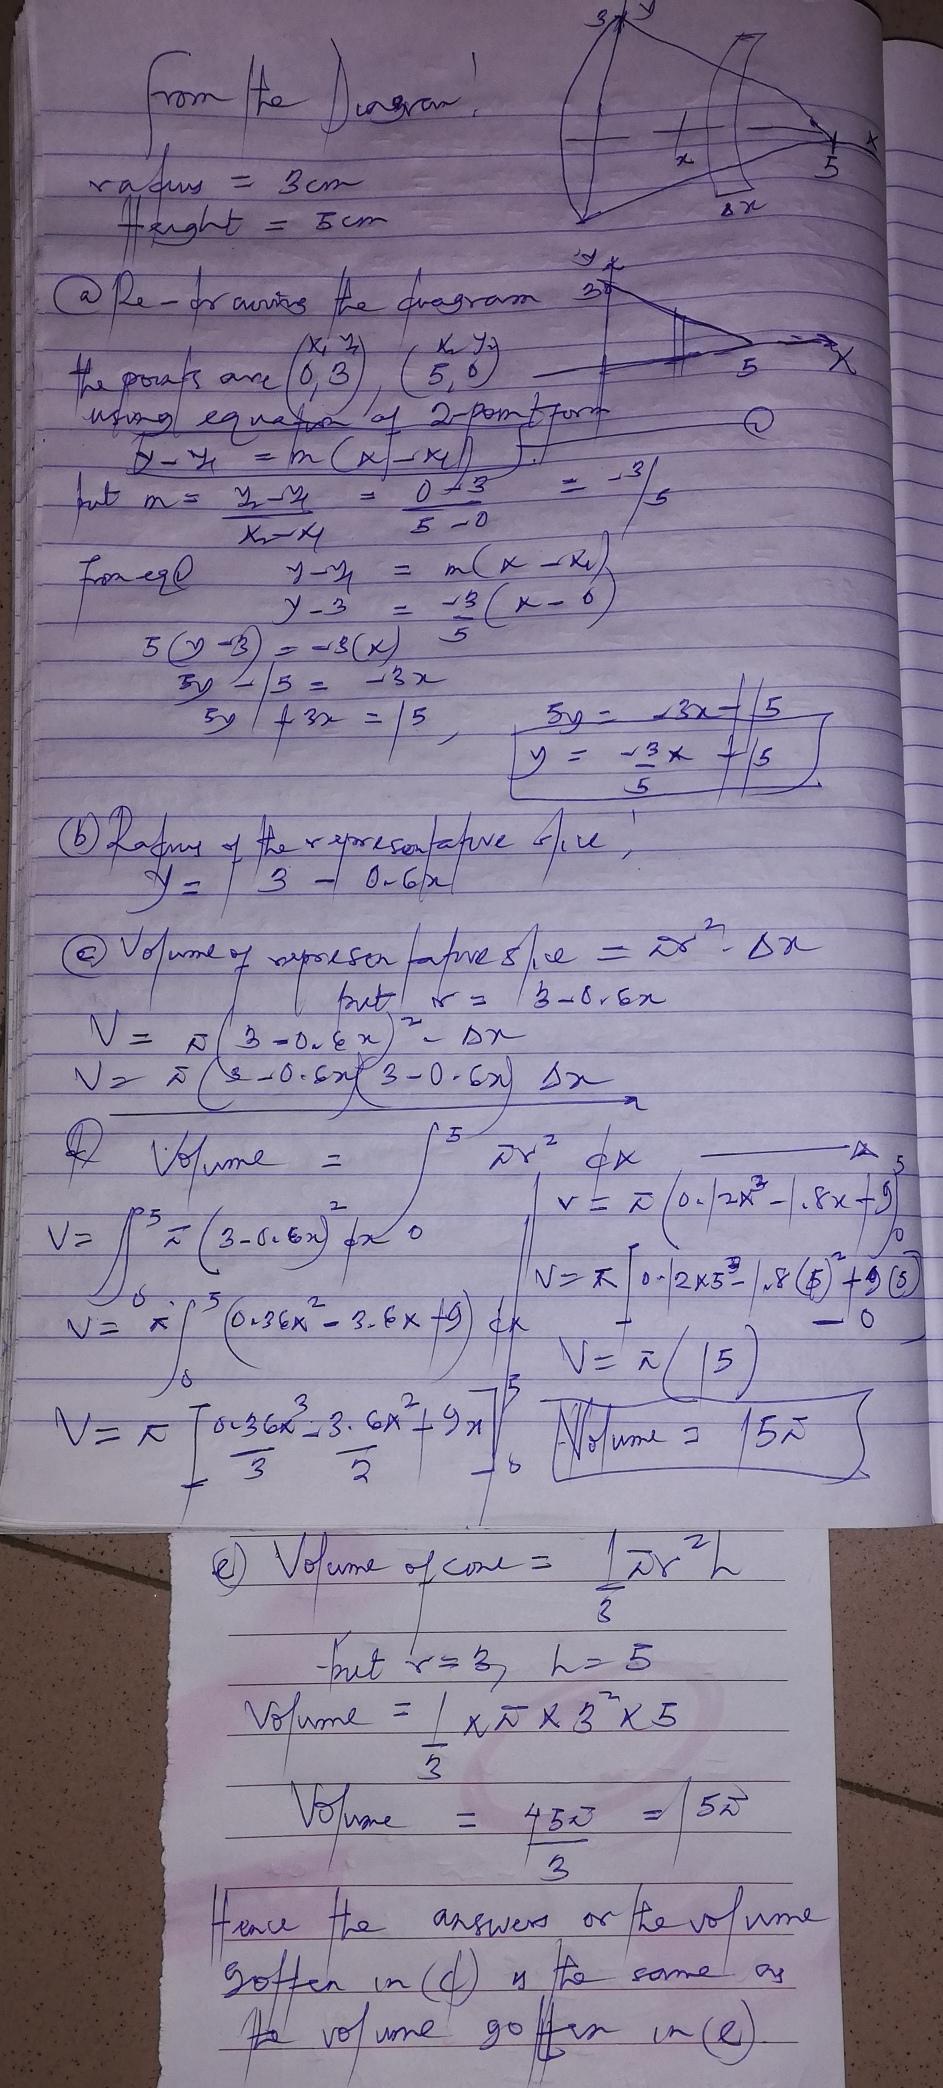 3 y
From the Diagram!
x
5
x
Δx
radius = 3cm
Height = 5cm
(a) Re-drawing the diagram
y
3
5 X
x₁ y₁ x₂ y₂
the points are (0, 3), (5, 0)
using equation of 2-point form
y - y₁ = m(x - x₁) ①
but m = y₂-y₁/x₂-x₁ = 0-3/5-0 = -3/5
From eq① y-y₁ = m(x - x₁)
y-3 = -3/5 (x - 0)
5(y-3) = -3(x)
5y - 15 = -3x
5y + 3x = 15, 5y = -3x + 15
y = -3/5 x + 15
(b) Radius of the representative slice,
y = 3 - 0.6x
(c) Volume of representative slice = πr² · Δx
but r = 3-0.6x
V = π(3-0.6x)² · Δx
V = π(3-0.6x)(3-0.6x) Δx
d) Volume = ∫₀⁵ πr² dx
V = ∫₀⁵ π(3-0.6x)² dx
V = π∫₀⁵ (0.36x² - 3.6x + 9) dx
V = π[0.36x³/3 - 3.6x²/2 + 9x]₀⁵
V = π(0.12x³ - 1.8x + 9)₀⁵
V = π[0.12x5³ - 1.8(5)² + 9(5) - 0
V = π(15)
Volume = 15π
e) Volume of cone = 1/3 πr²h
but r=3, h=5
Volume = 1/3 x π x 3² x 5
Volume = 45π/3 = 15π
Hence the answers or the volume
gotten in (d) is the same as
the volume gotten in (e)